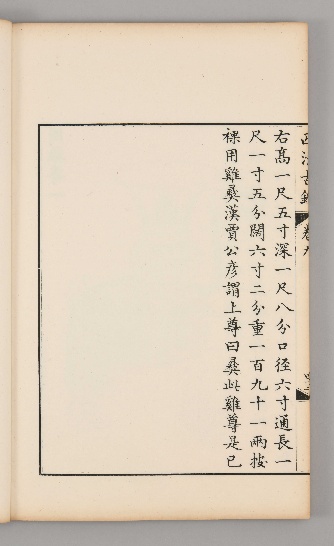 西清古鑑 卷九
右高一尺五寸深一尺八分口徑六寸通長一
尺一寸五分闊六寸二分重一百九十一兩按
祼用雞彝漢賈公彦謂上尊曰彝此雞尊是已